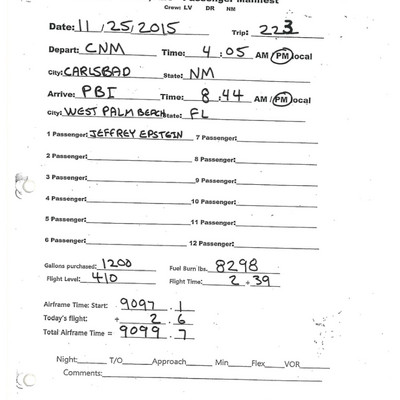 Passenger Manifest
Crew: LV DR NM
Date: 11/25/2015 Trip: 223
Depart: CNM Time: 4:05 AM / PM local
City: CARLSBAD State: NM
Arrive: PBI Time: 8:44 AM / PM local
City: WEST PALM BEACH State: FL
1 Passenger: JEFFREY EPSTEIN 7 Passenger:
2 Passenger: 8 Passenger:
3 Passenger: 9 Passenger:
4 Passenger: 10 Passenger:
5 Passenger: 11 Passenger:
6 Passenger: 12 Passenger:
Gallons purchased: 1200 Fuel Burn lbs. 8298
Flight Level: 410 Flight Time: 2+39
Airframe Time: Start: 9097.1
Today's flight: + 2.6
Total Airframe Time = 9099.7
Night: T/O Approach Min Flex VOR
Comments: